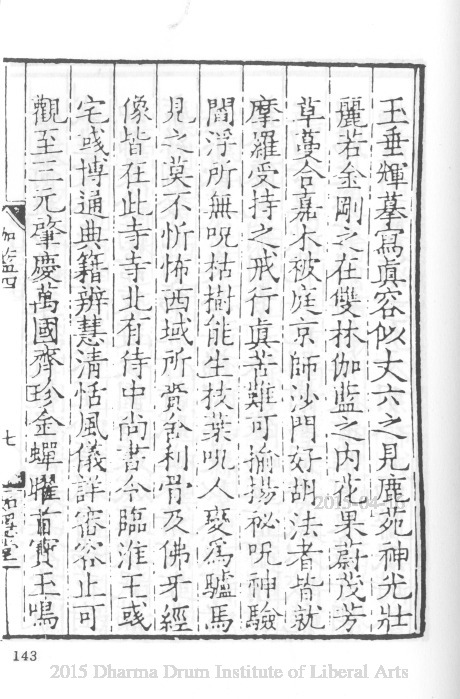 玉垂輝摹寫眞容似丈六之見鹿苑神光壯
麗若金剛之在雙林伽藍之内花果蔚茂芳
草蔓合嘉木被庭京師沙門好胡法者皆就
摩羅受持之戒行眞苦難可揄揚祕呪神驗
閻浮所無呪枯樹能生枝葉呪人變爲驢馬
見之莫不忻怖西域所賷舍利骨及佛牙經
像皆在此寺寺北有侍中尚書令臨淮王彧
宅彧博通典籍辨慧清恬風儀詳審容止可
觀至三元肇慶萬國齊珍金蟬曜首寶玉鳴
伽藍四
七
143
2015 Dharma Drum Institute of Liberal Arts